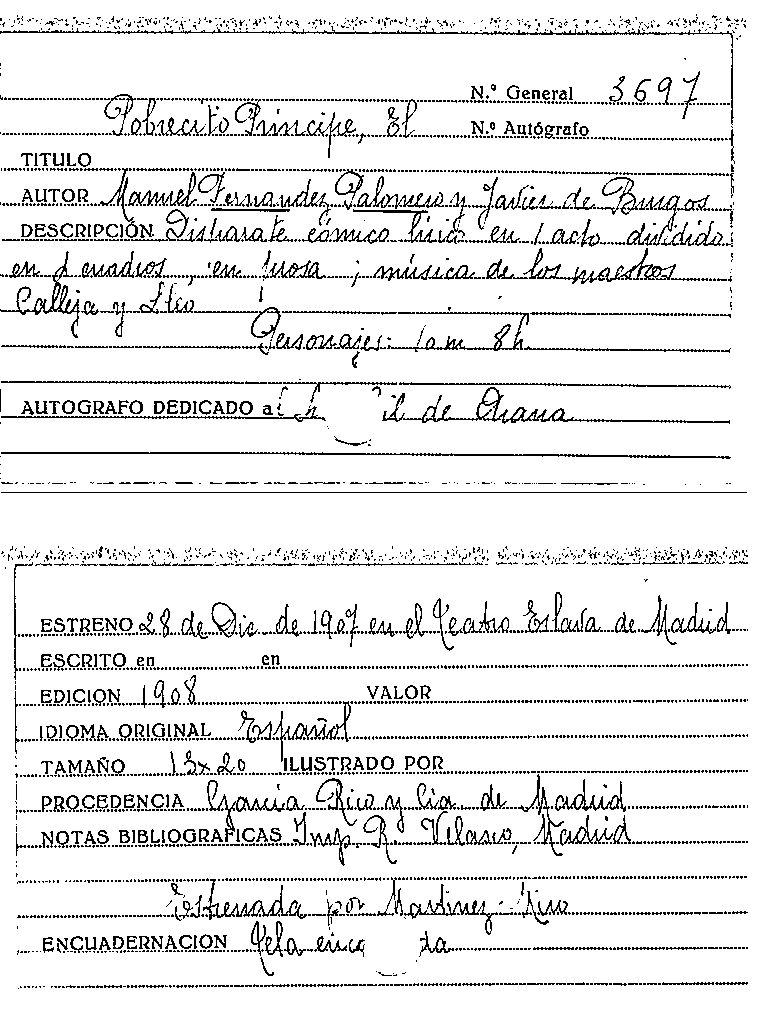 N.º General 3697
Pobrecito Principe, El
N.º Autógrafo
TITULO
AUTOR Manuel Fernandez Palomero y Javier de Burgos
DESCRIPCIÓN Disparate cómico lírico en 1 acto dividido
en 2 cuadros, en prosa; música de los maestros
Calleja y Lleó
Personajes: 10 m 8 h
AUTOGRAFO DEDICADO a de
ESTRENO 28 de Dic. de 1907 en el Teatro Eslava de Madrid
ESCRITO en en
EDICION 1908 VALOR
IDIOMA ORIGINAL Español
TAMAÑO 13x20 ILUSTRADO POR
PROCEDENCIA García Rico y Cia de Madrid
NOTAS BIBLIOGRAFICAS Imp. R. Velasco, Madrid
Estrenada por Martinez-
ENCUADERNACION Tela